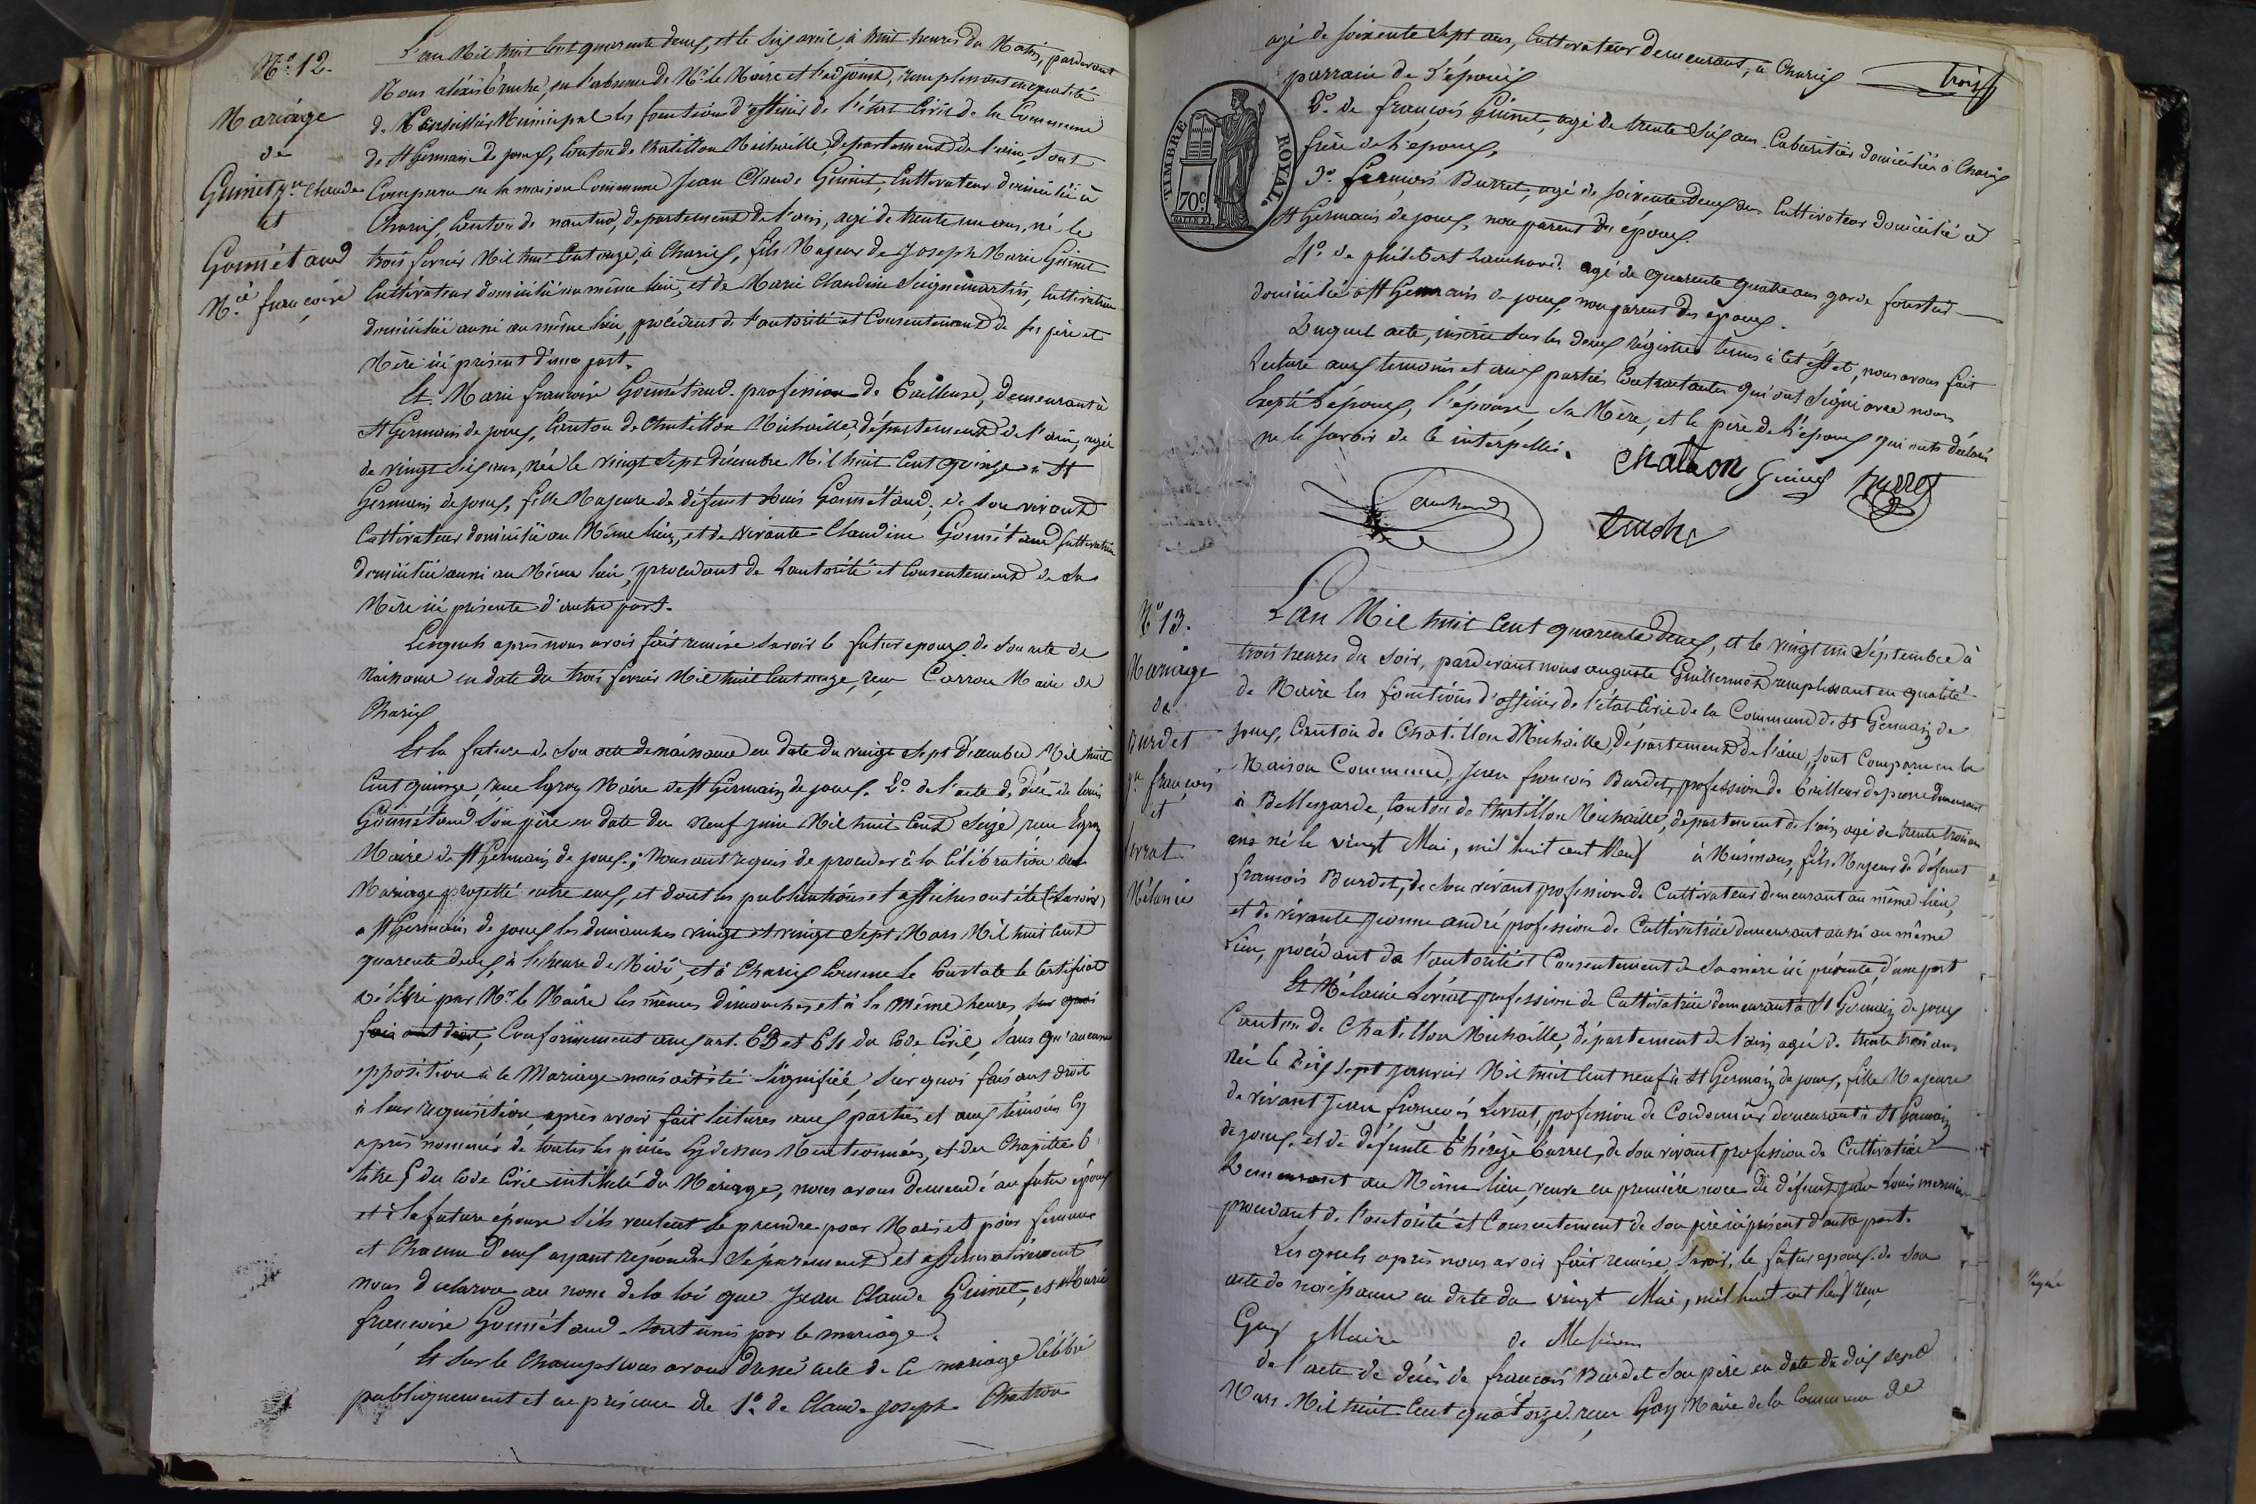 N.° 12.
Mariage
de
Guinet Jn Claude
et
Gonnétand
M.ie françoise
L'an Mil huit Cent quarente deux, et le six avril, à huit heures du Matin, pardevant
Nous aléxis Truche, en l'absence de Mr. le Maire et l'adjoint, remplissant en qualité
de Conseiller Municipal les fonctions d'officier de l'état Civil de la Commune
de St Germain de joux, Canton de Chatillon Michaille, département de l'ain, sont
Comparu en la maison Commune Jean Claude Guinet, Cultivateur domicilié à
Charix, Canton de nantua, département de l'ain, agé de trente un ans, né le
trois fevrier Mil huit Cent onze, à Charix, fils Majeur de Joseph Marie Guinet
Cultivateur domicilié au même lieu, et de Marie Claudine Seignemartin, Cultivatrice
domiciliée aussi au même lieu, procédant de l'autorité et Consentement de ses père et
Mère ici présent d'une part.
Et Marie françoise Gonnétand profession de Tailleuse, demeurant à
St Germain de joux, Canton de Chatillon Michaille, département de l'ain, agée
de vingt six ans, née le vingt sept décembre Mil huit Cent quinze à St
Germain de joux, fille Majeure de défunt Louis Gonnétand, de son vivant
Cultivateur domicilié au Même lieu, et de vivante Claudine Gonnétand Cultivatrice
domiciliée aussi au Même lieu, procédant de l'autorité et Consentement de sa
Mère ici présente d'autre part.
Lesquels après nous avoir fait remise savoir le futur epoux de son acte de
Naissance en date du trois fevrier Mil huit Cent onze, reçu Carron Maire de
Charix
Et la future de son acte de naissance en date du vingt sept décembre Mil huit
Cent quinze, reçu Egroz Maire de St Germain de joux. 2° de l'acte de décè de Louis
Gonnétand son père en date du neuf juin Mil huit Cent Seize reçu Egroz
Maire de St Germain de joux; Nous ont requis de proceder à la Célébration du
Mariage projetté entre eux, et dont les publications et affiches ont été (savoir)
a St Germain de joux les dimanches vingt et vingt sept Mars Mil huit Cent
quarente deux à l'heure de Midi, et à Charix Comme le Constate le Certificat
Délivré par Mr. le Maire les mêmes dimanches et à la même heures, sur quoi
fais ant droit, Conformement aux art. 63 et 64 du Code Civil, sans qu'aucune
opposition à le Mariage nous ait été signifiée, sur quoi fais ant droit
à leur requisition, après avoir fait lectures aux parties et aux témoins Cy
après nommés de toutes les pièces Cy dessus Mentionnées, et du Chapitre 6
titre 5 du Code Civil intitulé du Mariage, nous avons demandé au futur époux
et à la future épouse s'ils veulent se prendre pour Mari et pour femme
et Chacun d'eux ayant repondu séparement et affirmativement
nous declarons au nom de la loi que Jean Claude Guinet, et Marie
françoise Gonnétand sont unis par le mariage.
Et sur le Champ nous avons dressé acte de Ce mariage Célébré
publiquement et en présence de 1.° de Claude joseph Chatron
agé de soixente sept ans, Cultivateur demeurant, à Charix
parrain de l'épouse
2.° de françois Guinet, agé de trente six ans Cabaretier domicilié à Charix
frère de l'epoux,
3.° françois Burret, agé de soixente deux ans Cultivateur domicilié à
St Germain de joux, non parent des époux.
4.° de philibert Lauchard agé de quarente quatre ans garde forestier
domicilié à St Germain de joux, non parent des époux.
Duquel acte, inscrit sur les deux régistres tenus à Cet effet, nous avons fait
Lecture aux temoins et aux parties Contractantes qui ont signé avec nous
Excepté l'époux, l'épouse, sa Mère, et le père de l'époux qui ont déclaré
ne le savoir de Ce interpellés.
Chatron Guinet Burret
Lauchard
Truche
TIMBRE ROYAL.
70c
N° 13.
Mariage
de
Burdet
Jn françois
et
Levrat
Mélanie
L'an Mil huit Cent quarente deux, et le vingt un Séptembre à
trois heures du soir, pardevant nous auguste Guillermet remplissant en qualité
de Maire les fonctions d'officier de l'état Civil de la Commune de St Germain de
joux, Canton de Chatillon Michaille, Département de l'ain, sont Comparu en la
Maison Commune, Jean francois Burdet, profession de Tailleur de pierre demeurant
à Bellegarde, Canton de Chatillon Michaille, departement de l'ain agé de trente trois ans
ans né le vingt Mai, mil huit cent Neuf à Musinens, fils Majeur de défunt
francois Burdet, de son vivant profession de Cultivateur demeurant au même lieu,
et de vivante jeanne andré profession de Cultivatrice demeurant aussi au même
Lieu, procédant de l'autorité et Consentement de sa mère ici présente, d'une part
Et Mélanie Levrat profession de Cultivatrice demeurant à St Germain de joux
Canton de Chatillon Michaille, département de l'ain agée de trente trois ans
née le Dix sept janvier Mil huit Cent neuf à St Germain de joux, fille Majeure
de vivant Jean françois Levrat, profession de Cordonnier demeurant à St Germain
de joux, et de défunte Thérèze Burret, de son vivant profession de Cultivatrice
Demeurant au Même lieu, veuve en première noce de défunt Louis
procédant de l'autorité et Consentement de son père ici présent d'autre part.
Lesquels après nous avoir fait remise, savoir, le futur epoux de son
acte de naissance en date du vingt Mai, mil huit cent Neuf reçu
Gay Maire de Musinens
de l'acte de décès de francois Burdet son père en date du dix sept
Mars Mil huit Cent quatorze reçu Gay Maire de la Commune de